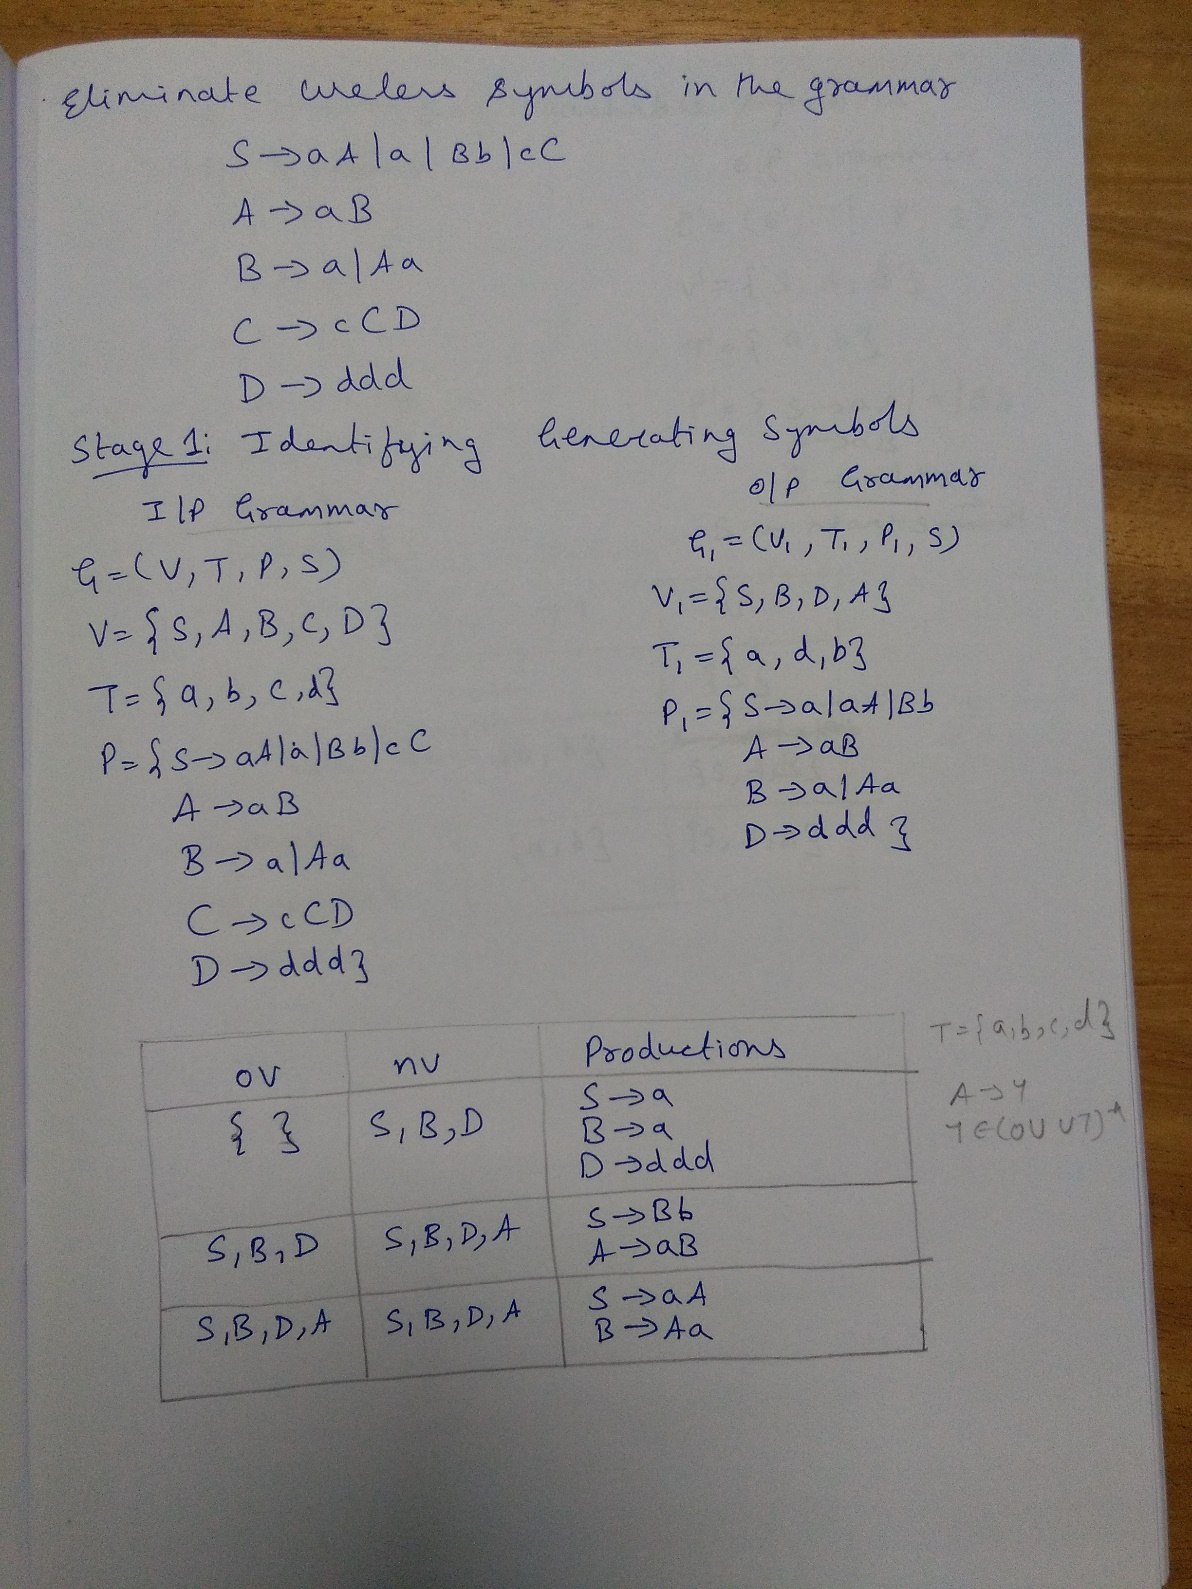 Eliminate useless symbols in the grammar
S → aA | a | Bb | cC
A → aB
B → a | Aa
C → cCD
D → ddd
Stage 1: Identifying Generating Symbols
I/P Grammar
G = (V, T, P, S)
V = { S, A, B, C, D }
T = { a, b, c, d }
P = { S → aA | a | Bb | cC
A → aB
B → a | Aa
C → cCD
D → ddd }
O/P Grammar
G₁ = (V₁, T₁, P₁, S)
V₁ = { S, B, D, A }
T₁ = { a, d, b }
P₁ = { S → a | aA | Bb
A → aB
B → a | Aa
D → ddd }
ov nv Productions
{ } S, B, D S → a
B → a
D → ddd
S, B, D S, B, D, A S → Bb
A → aB
S, B, D, A S, B, D, A S → aA
B → Aa
T = { a, b, c, d }
A → Y
Y ∈ (OV ∪ T)*